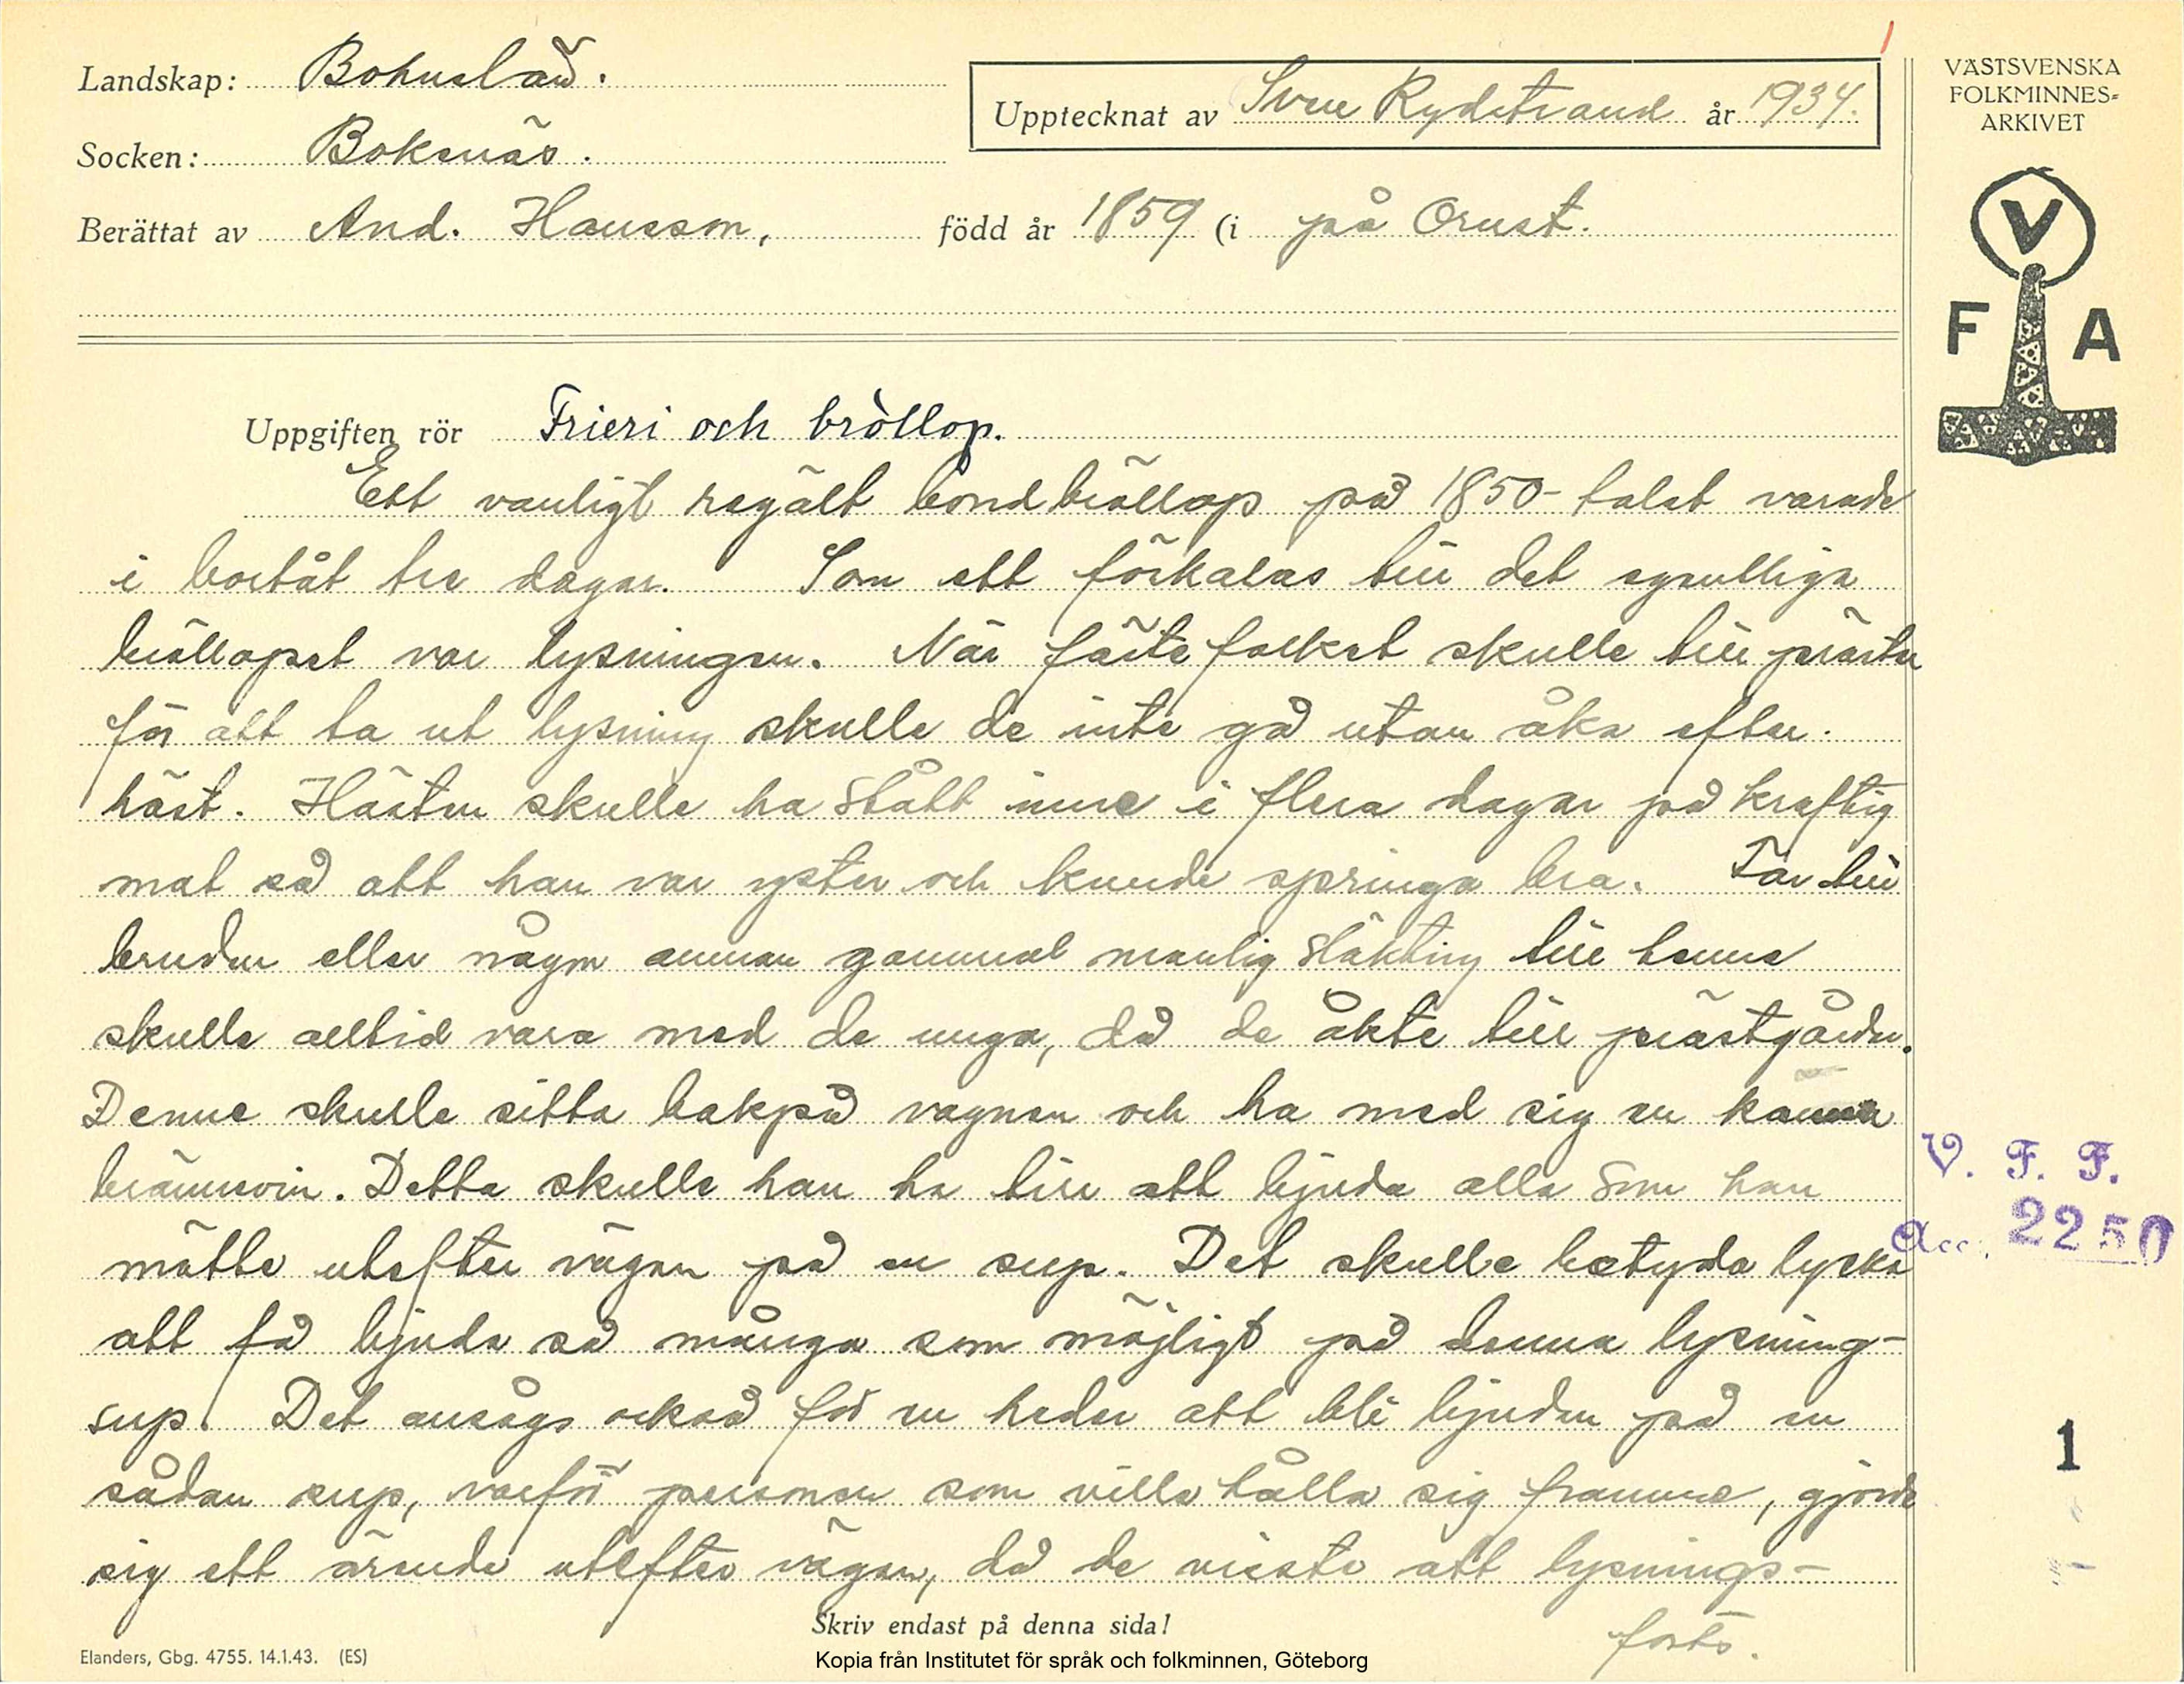 Landskap: Bohuslän.
Socken: Boksnäs.
Berättat av And. Hansson, född år 1859 (i på Orust.
Upptecknat av Sven Rydstrand år 1934.
VÄSTSVENSKA
FOLKMINNES=
ARKIVET
V
F A
Uppgiften rör Frieri och bröllop.
Ett vanligt regält bondbröllop på 1850-talet varade
i bortåt tre dagar. Som ett förkalas till det egentliga
bröllopet var lysningen. När fästefolket skulle till prästen
för att ta ut lysning skulle de inte gå utan åka efter
häst. Hästen skulle ha stått inne i flera dagar på kraftig
mat så att han var yster och kunde springa bra. Far till
bruden eller någon annan gammal manlig släkting till henne
skulle alltid vara med de unga, då de åkte till prästgården.
Denne skulle sitta bakpå vagnen och ha med sig en kanna
brännvin. Detta skulle han ha till att bjuda alla som han
mötte utefter vägen på en sup. Det skulle betyda lycka
att få bjuda så många som möjligt på denna lysning-
sup. Det ansågs också för en heder att bli bjuden på en
sådan sup, varför personer som ville hålla sig framme, gjorde
sig ett ärende utefter vägen, då de visste att lysnings-
forts.
V. F. F.
Acc. 2250
1
Skriv endast på denna sida!
Elanders, Gbg. 4755. 14.1.43. (ES)
Kopia från Institutet för språk och folkminnen, Göteborg